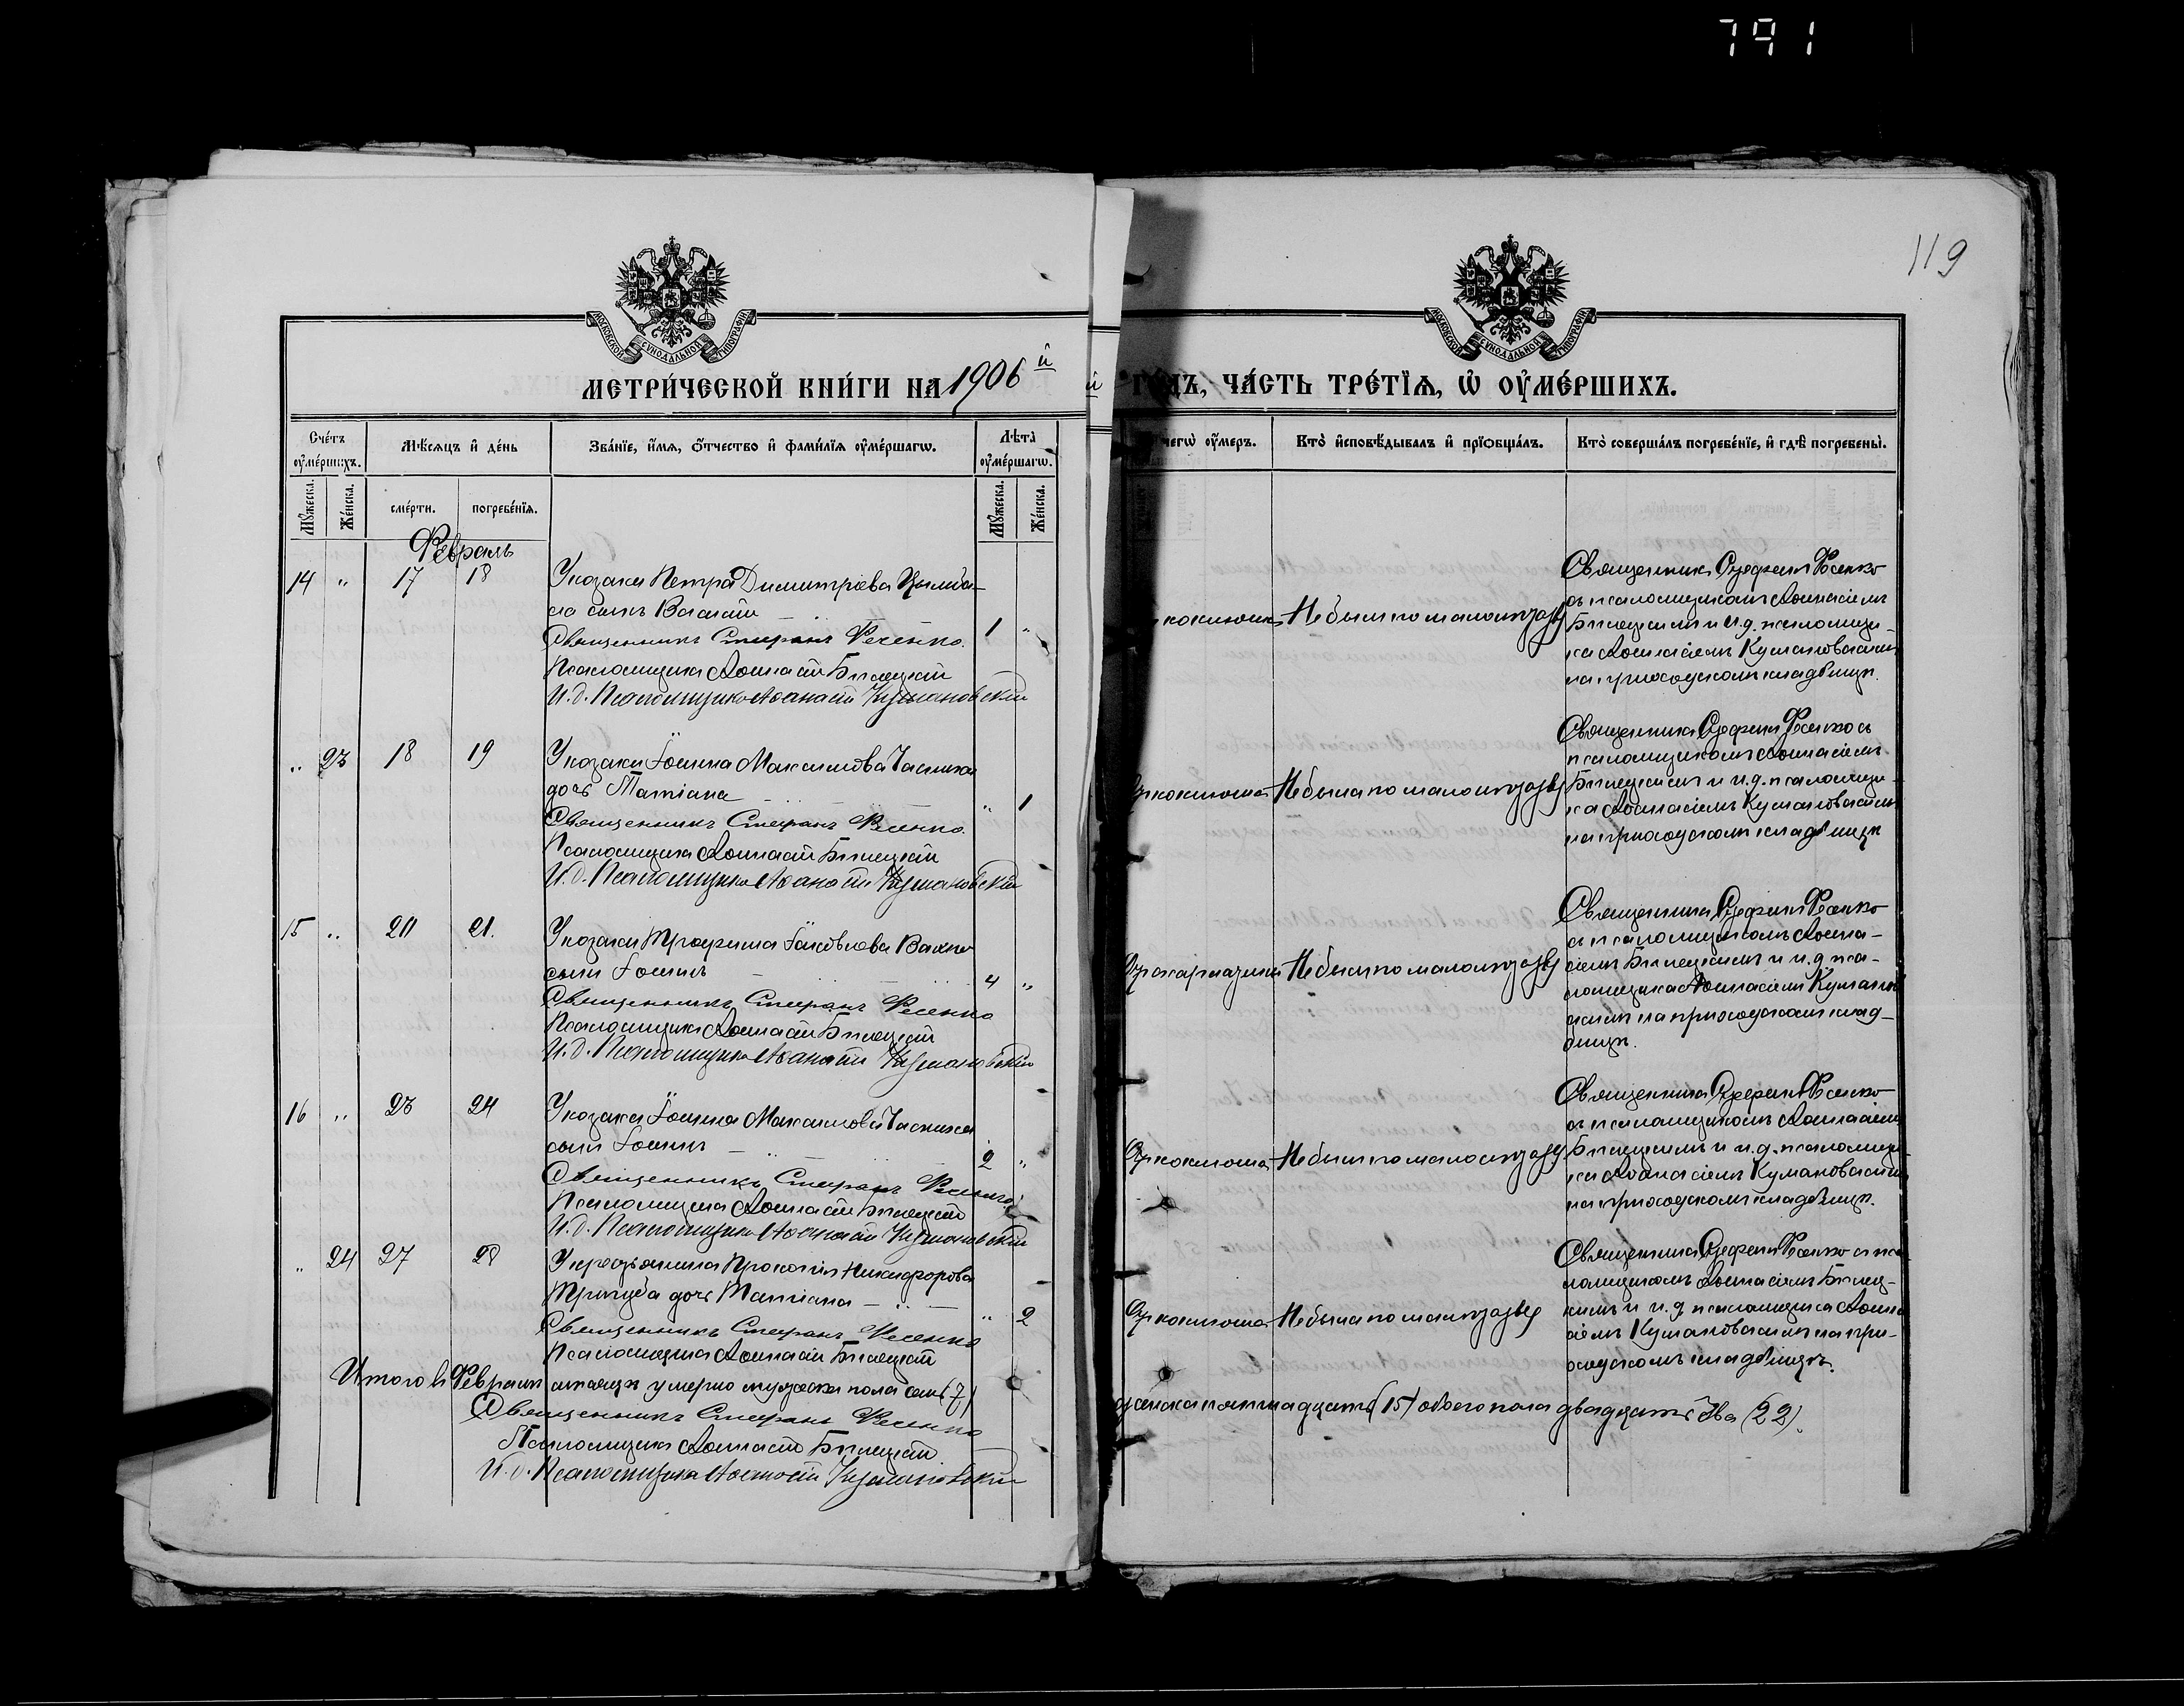 791
119
МОСКОВСКОЙ СУНОДАЛЬНОЙ ТИПОГРАФІИ
МОСКОВСКОЙ СУНОДАЛЬНОЙ ТИПОГРАФІИ
МЕТРИ́ЧЕСКОЙ КНИ́ГИ НА 1906 й
ГО́ДЪ, ЧА́СТЬ ТРЕ́ТЇѦ, Ѡ ОУМЕ́РШИХЪ.
Сче́тъ оуме́ршихъ.
Мѣ́сяцъ и де́нь
Зва́нїе, и́мя, о́тчество и фами́лїя оуме́ршагѡ.
Лѣта̀ оуме́ршагѡ.
чегѡ̀ оу́меръ.
Кто̀ исповѣ́дывалъ и прїѡбща́лъ.
Кто̀ соверша́лъ погребе́нїе, и гдѣ̀ погребены̀.
Му́жеска.
Же́нска.
сме́рти.
погребе́нїя.
Му́жеска.
Же́нска.
Февраль
14 " 17 18
У козака Петра Димитріева
сынъ Василій
1 "
Священникъ Стефанъ Фесенко.
Псаломщикъ Аѳанасій Билецкій
И.д. Псаломщика Аѳанасій Кумановскій
коклюша
Не былъ по малолѣтству
Священникъ Стефанъ Фесенко
съ псаломщикомъ Аѳанасіемъ
Билецкимъ и и.д. псаломщи-
ка Аѳанасіемъ Кумановскимъ
на приходскомъ кладбищѣ.
" 23 18 19
У козака Іоанна Максимова
дочь Татіана
" 1
Священникъ Стефанъ Фесенко.
Псаломщикъ Аѳанасій Билецкій
И.д. Псаломщика Аѳанасій Кумановскій
Отъ коклюша
Не была по малолѣтству
Священникъ Стефанъ Фесенко съ
псаломщикомъ Аѳанасіемъ
Билецкимъ и и.д. псаломщи-
ка Аѳанасіемъ Кумановскимъ
на приходскомъ кладбищѣ
15 " 20 21.
У козака Трофима Іаковлева
сынъ Іоаннъ
4 "
Священникъ Стефанъ Фесенко
Псаломщикъ Аѳанасій Билецкій
И.д. Псаломщика Аѳанасій Кумановскій
Не былъ по малолѣтству
Священникъ Стефанъ Фесенко
съ псаломщикомъ Аѳана-
сіемъ Билецкимъ и и.д. пса-
ломщика Аѳанасіемъ Куманов
скимъ на приходскомъ клад-
бищѣ.
16 " 23 24
У козака Іоанна Максимова
сынъ Іоаннъ
2 "
Священникъ Стефанъ Фесенко
Псаломщикъ Аѳанасій Билецкій
И.д. Псаломщика Аѳанасій Кумановскій
Отъ коклюша
Не былъ по малолѣтству
Священникъ Стефанъ Фесенко
съ псаломщикомъ Аѳанасіемъ
Билецкимъ и и.д. псаломщи-
ка Аѳанасіемъ Кумановскимъ
на приходскомъ кладбищѣ.
" 24 27 28
У крестьянина Прокопія Никифорова
дочь Татіана
" 2
Священникъ Стефанъ Фесенко
Псаломщикъ Аѳанасій Билецкій
Отъ коклюша
Не была по малолѣтству
Священникъ Стефанъ Фесенко съ пса
ломщикомъ Аѳанасіемъ Билец-
кимъ и и.д. псаломщика Аѳана
сіемъ Кумановскимъ на при-
ходскомъ кладбищѣ.
Итого въ Февралѣ мѣсяцѣ умерло мужеска пола семь (7)
женска пятнадцать (15) обоего пола двадцать два (22).
Священникъ Стефанъ Фесенко
Псаломщикъ Аѳанасій Билецкій
И.д. Псаломщика Аѳанасій Кумановскій